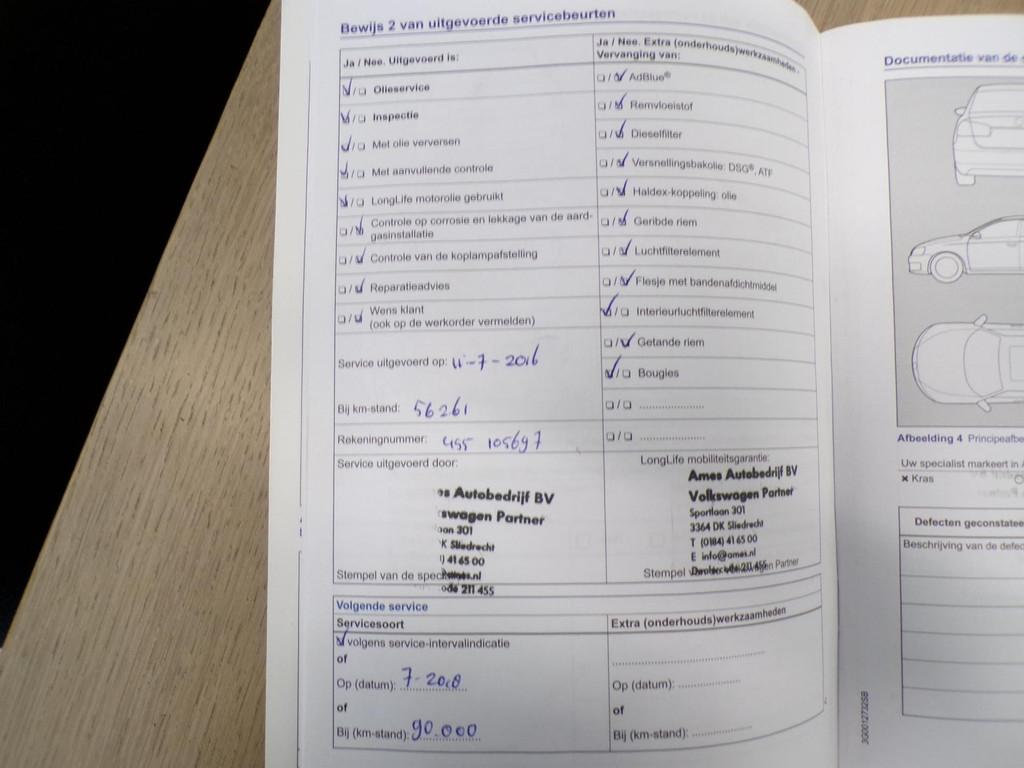 Bewijs 2 van uitgevoerde servicebeurten
Ja / Nee. Uitgevoerd is:
Olieservice
Inspectie
Met olie verversen
Met aanvullende controle
LongLife motorolie gebruikt
Controle op corrosie en lekkage van de aard-
gasinstallatie
Controle van de koplampafstelling
Reparatieadvies
Wens klant
(ook op de werkorder vermelden)
Service uitgevoerd op: 11-7-2016
Bij km-stand: 56261
Rekeningnummer: 455 105697
Service uitgevoerd door:
Autobedrijf BV
swagen Partner
301
K Sliedrecht
41 65 00
Stempel van de
211 455
Ja / Nee. Extra (onderhouds)werkzaamheden -
Vervanging van:
AdBlue®
Remvloeistof
Dieselfilter
Versnellingsbakolie: DSG®, ATF
Haldex-koppeling: olie
Geribde riem
Luchtfilterelement
Flesje met bandenafdichtmiddel
Interieurluchtfilterelement
Getande riem
Bougies
LongLife mobiliteitsgarantie:
Ames Autobedrijf BV
Volkswagen Partner
Sportlaan 301
3364 DK Sliedrecht
T (0184) 41 65 00
E info@ames.nl
Stempel
Partner
Volgende service
Servicesoort
volgens service-intervalindicatie
of
Op (datum): 7-2018
of
Bij (km-stand): 90.000
Extra (onderhouds)werkzaamheden
Op (datum):
of
Bij (km-stand):
Documentatie van de
Afbeelding 4 Principeafbe
Uw specialist markeert in
× Kras
Defecten geconstatee
Beschrijving van de defec
3G0012732SB